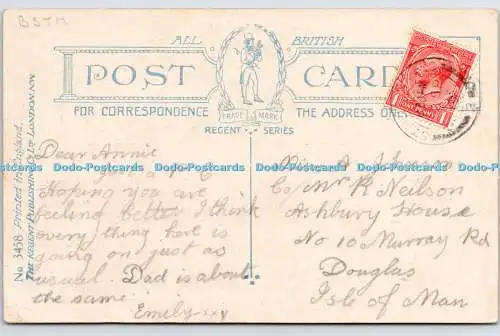 BSTM
ALL BRITISH
POST CARD
FOR CORRESPONDENCE
THE ADDRESS ONLY
TRADE MARK
REGENT SERIES
ONE PENNY
No 3458 Printed in England.
THE REGENT PUBLISHING Co Ltd LONDON. NW.
Dodo-Postcards Dodo-Postcards Dodo-Postcards Dodo-Postcards Dodo-Postcards
Dear Annie
Hoping you are
feeling better I think
every thing here is
going on just as
usual. Dad is about
the same.
Emily xxy
A
C/o Mr R Neilson
Ashbury House
No 10 Murray Rd
Douglas
Isle of Man